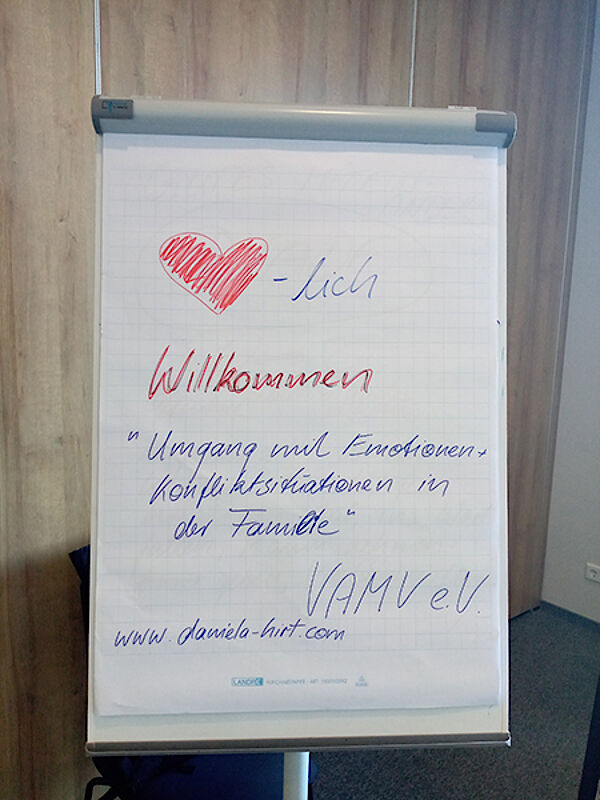 -lich
Willkommen
"Umgang mit Emotionen +
Konfliktsituationen in
der Familie"
VAMV e.V.
www.daniela-hirt.com
LANDRÉ